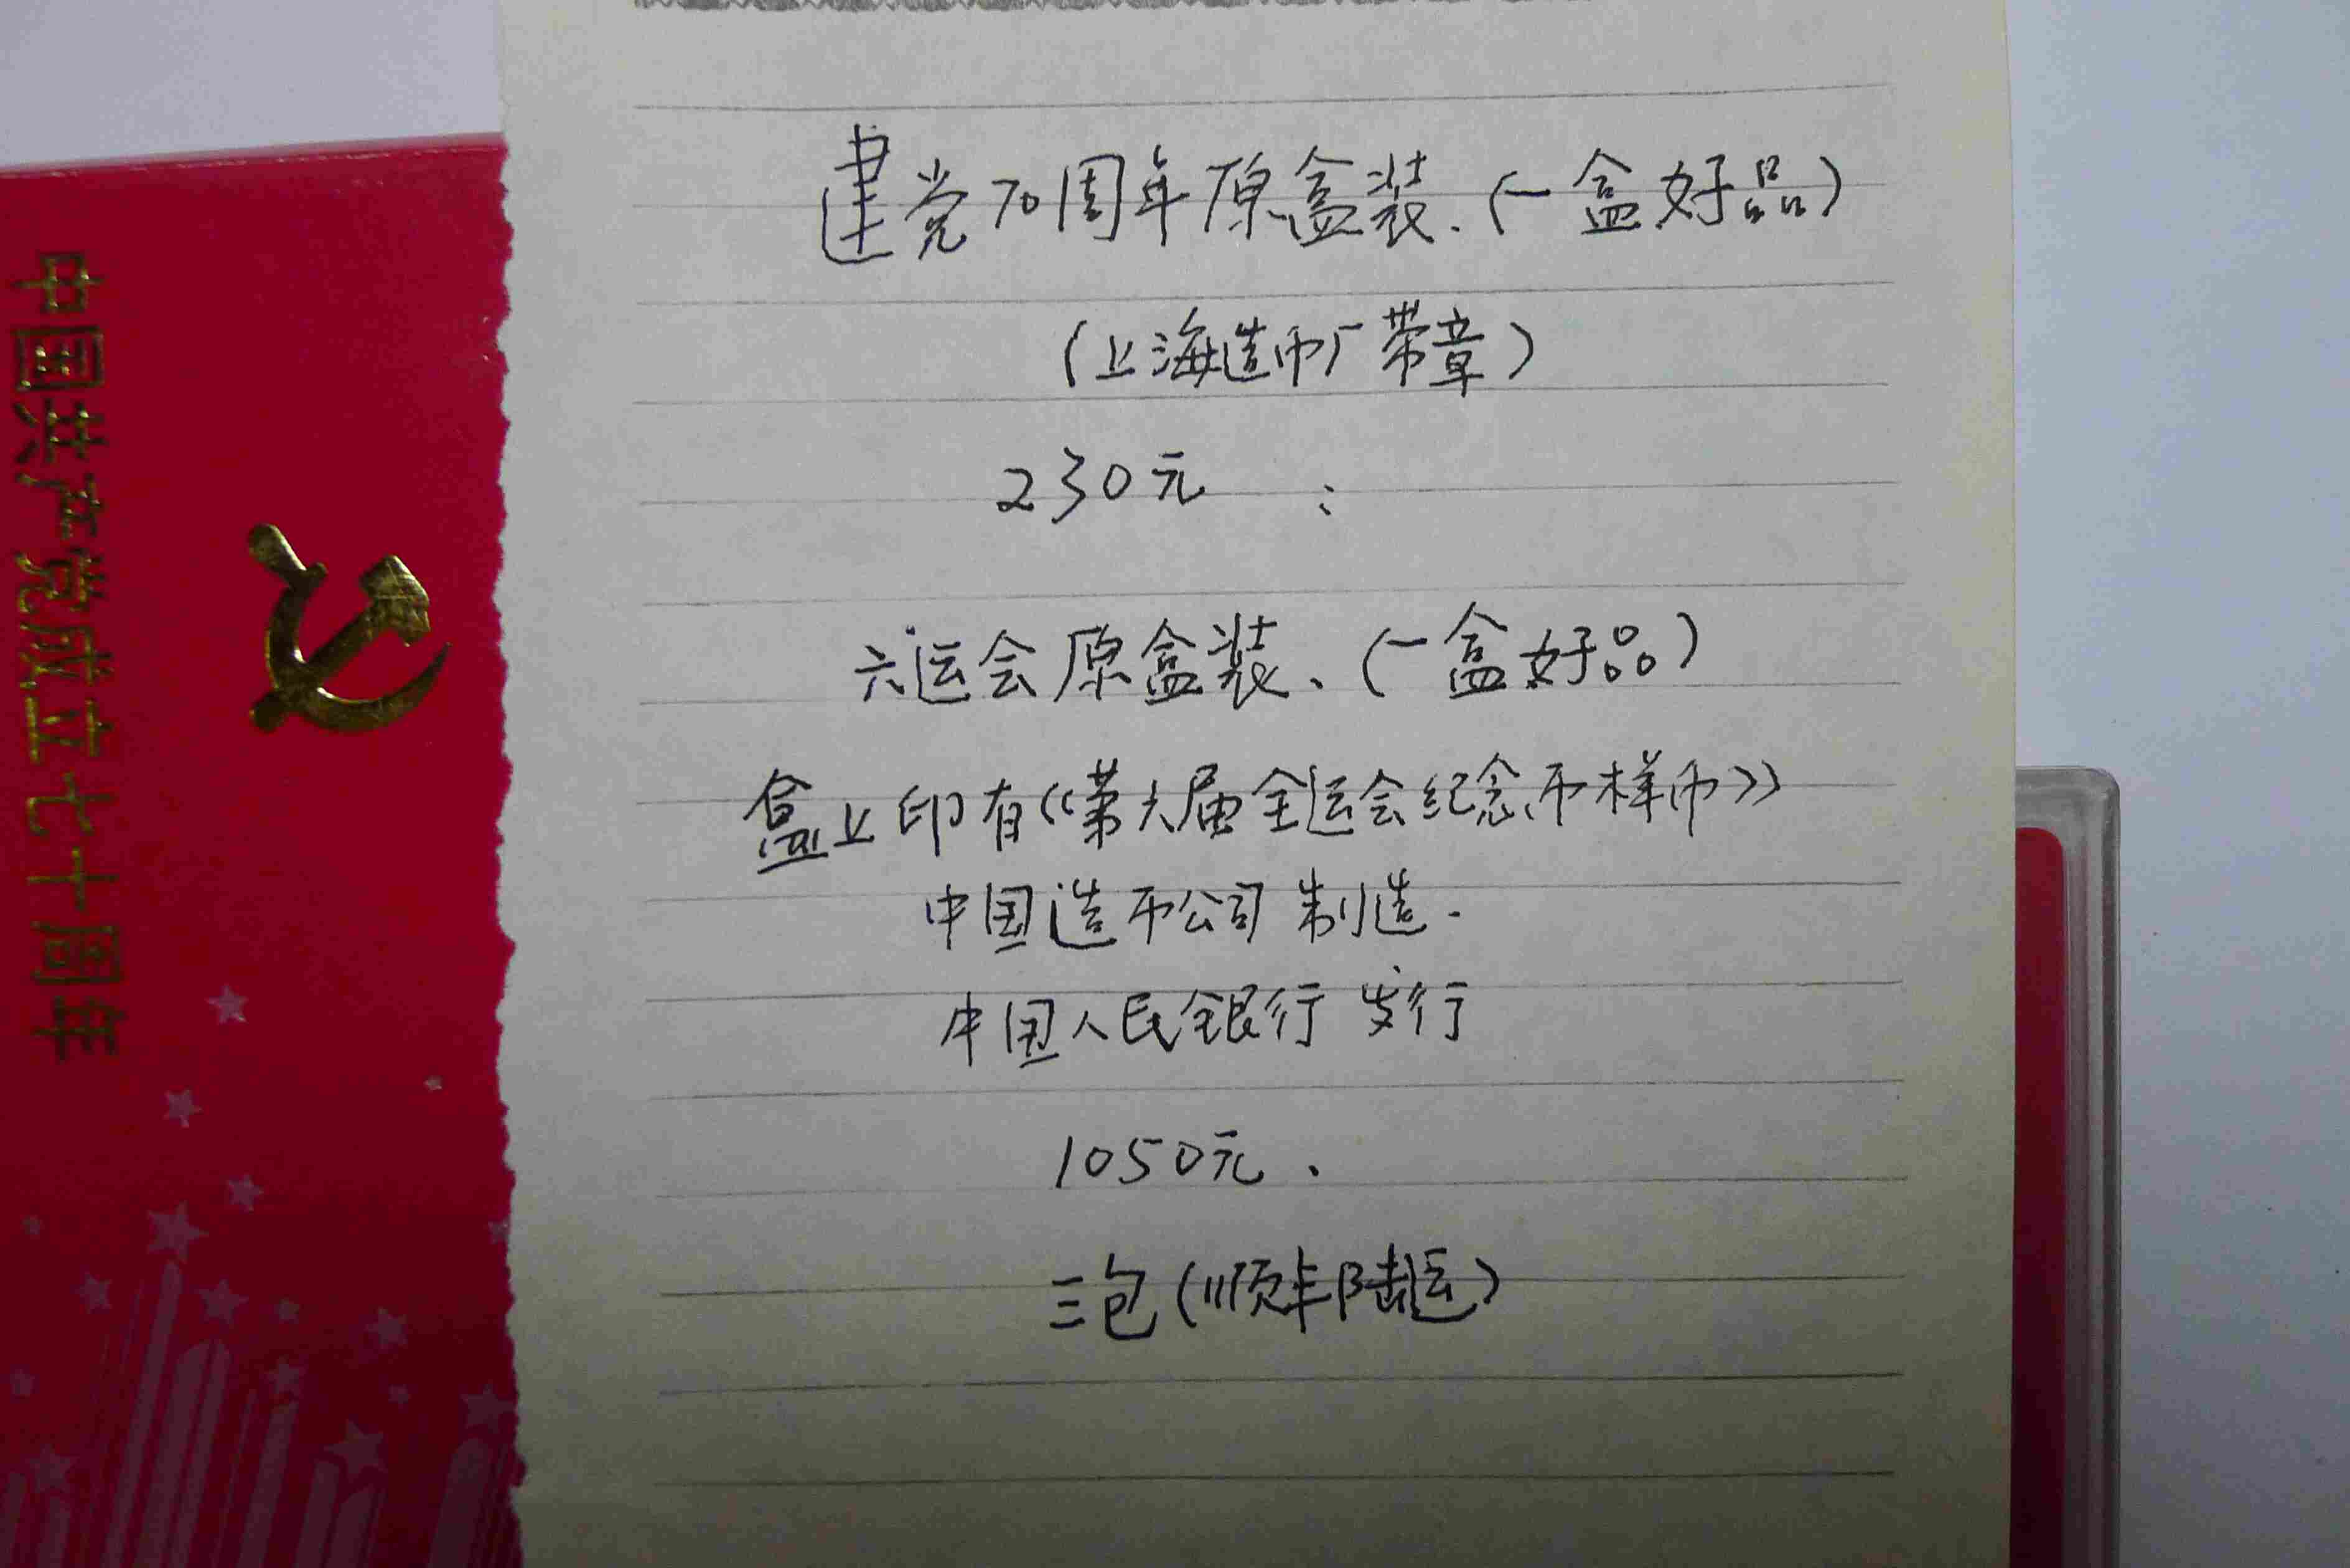 中国共产党成立七十周年
建党70周年原盒装.(一盒好品)
(上海造币厂带章)
230元 :
六运会原盒装、(一盒好品)
盒上印有《第六届全运会纪念币样币》
中国造币公司制造.
中国人民银行发行
1050元、
三包(顺丰陆运)